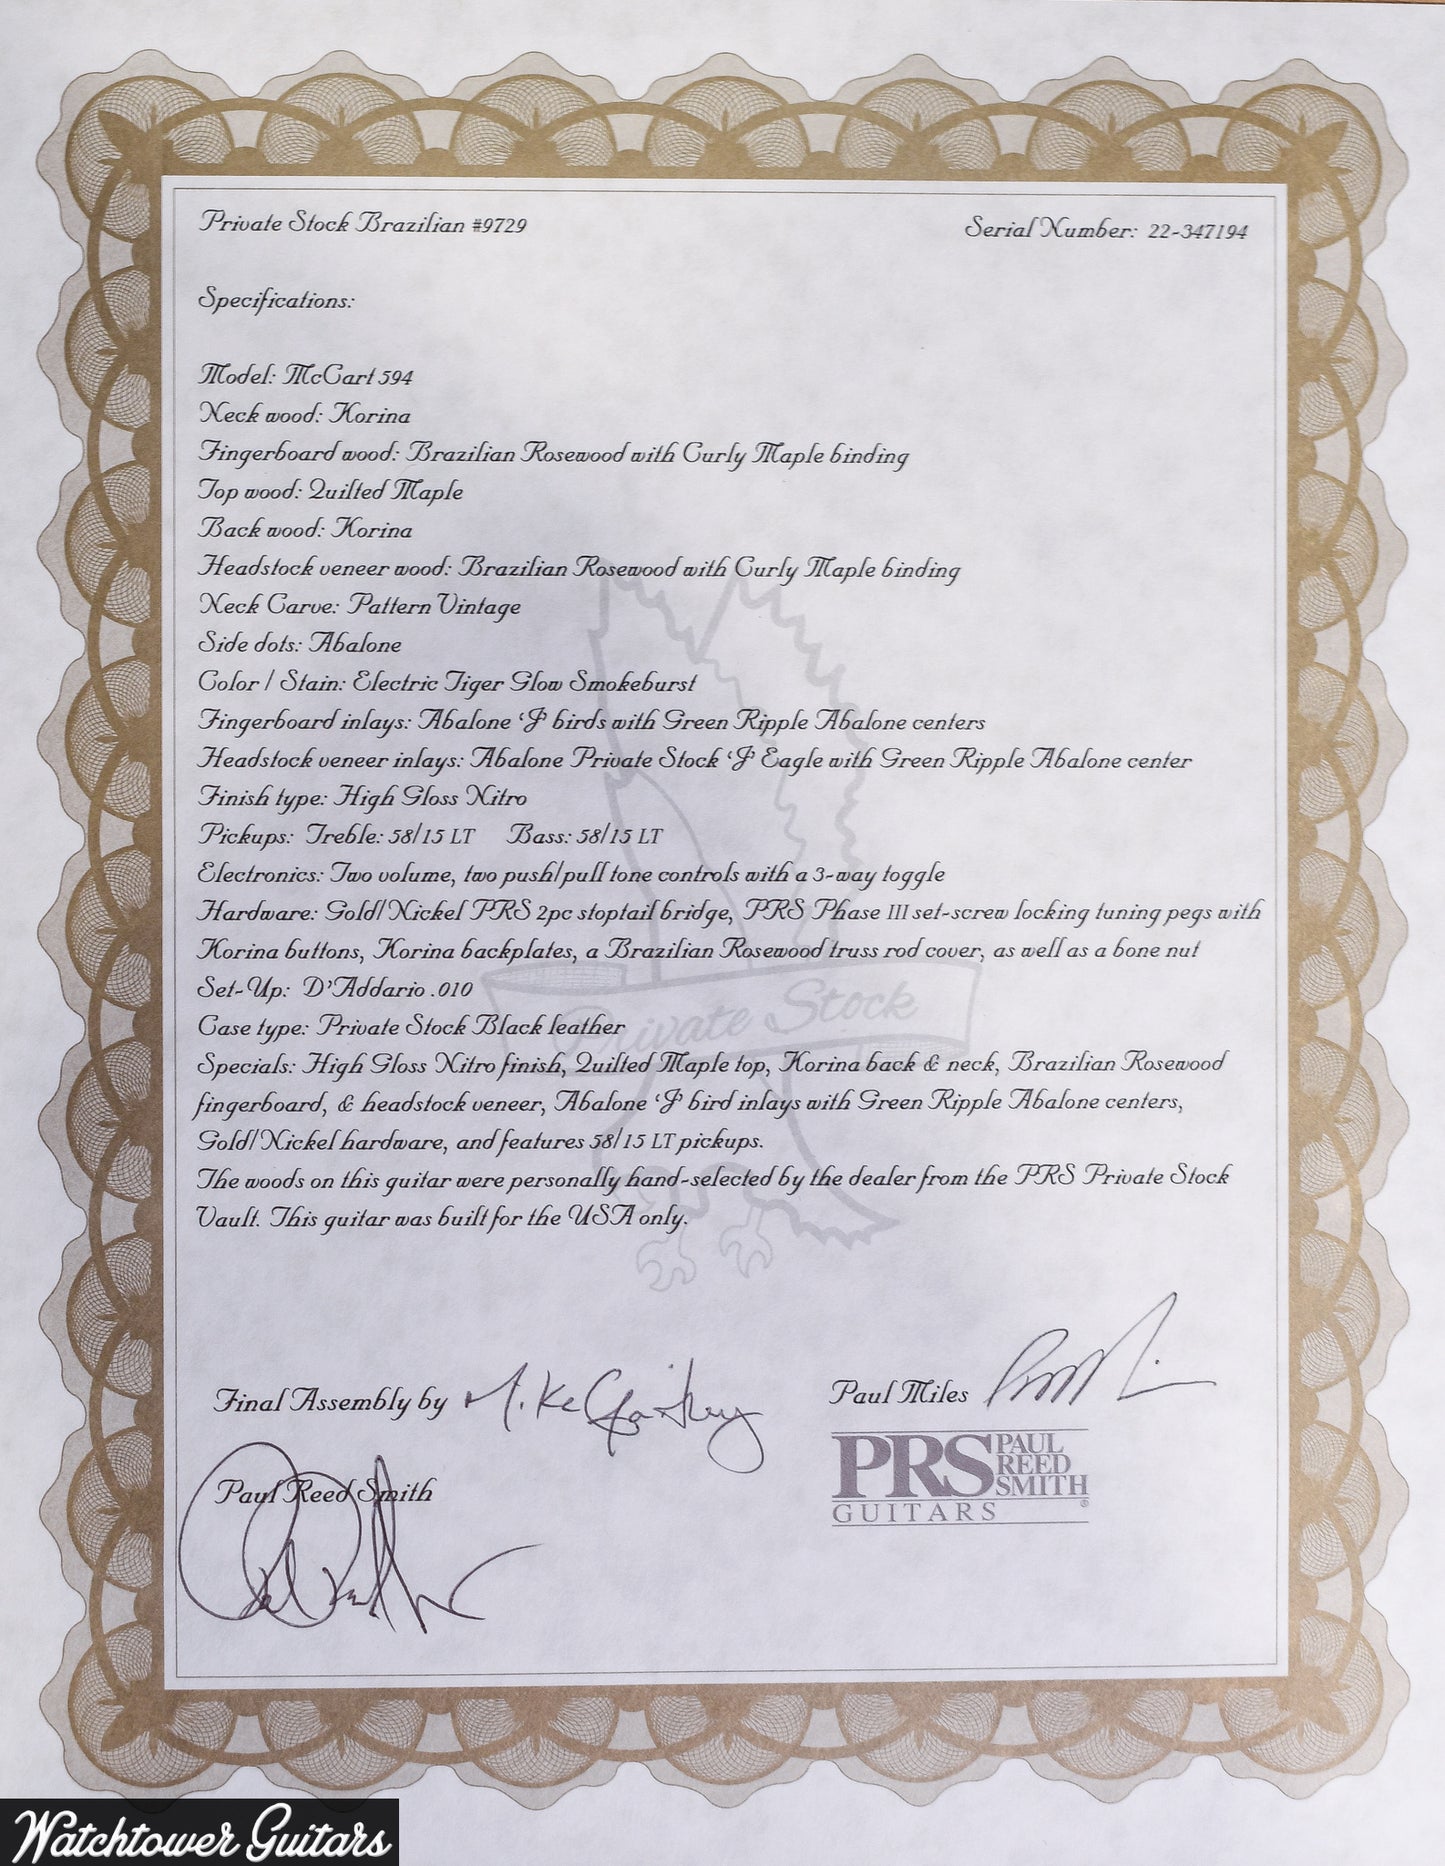 Private Stock Brazilian #9729
Serial Number: 22-347194
Specifications:
Model: McCart 594
Neck wood: Korina
Fingerboard wood: Brazilian Rosewood with Curly Maple binding
Top wood: Quilted Maple
Back wood: Korina
Headstock veneer wood: Brazilian Rosewood with Curly Maple binding
Neck Carve: Pattern Vintage
Side dots: Abalone
Color / Stain: Electric Tiger Glow Smokeburst
Fingerboard inlays: Abalone ‘J’ birds with Green Ripple Abalone centers
Headstock veneer inlays: Abalone Private Stock ‘J’ Eagle with Green Ripple Abalone center
Finish type: High Gloss Nitro
Pickups: Treble: 58/15 LT Bass: 58/15 LT
Electronics: Two volume, two push/pull tone controls with a 3-way toggle
Hardware: Gold/Nickel PRS 2pc stoptail bridge, PRS Phase III set-screw locking tuning pegs with
Korina buttons, Korina backplates, a Brazilian Rosewood truss rod cover, as well as a bone nut
Set-Up: D’Addario .010
Case type: Private Stock Black leather
Private Stock
Specials: High Gloss Nitro finish, Quilted Maple top, Korina back & neck, Brazilian Rosewood
fingerboard, & headstock veneer, Abalone ‘J’ bird inlays with Green Ripple Abalone centers,
Gold/Nickel hardware, and features 58/15 LT pickups.
The woods on this guitar were personally hand-selected by the dealer from the PRS Private Stock
Vault. This guitar was built for the USA only.
Final Assembly by
Paul Miles
Paul Reed Smith
PRS PAUL
REED
SMITH
GUITARS ®
Watchtower Guitars